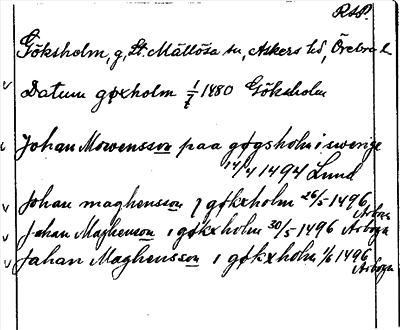 RSP.
Göksholm, g, St. Mällösa sn, Askers hd, Örebro l
Datum gøxholm 1/7 1480 Göksholm
Johan Mowensson paa gøgsholm i swerige
14/4 1494 Lund
Johan maghensson j gøkxholm 26/5 1496
Arboga
Johan Maghenson i gøkxholm 30/5 1496 Arboga
Johan Maghensson i gøkxholm 1/6 1496
Arboga